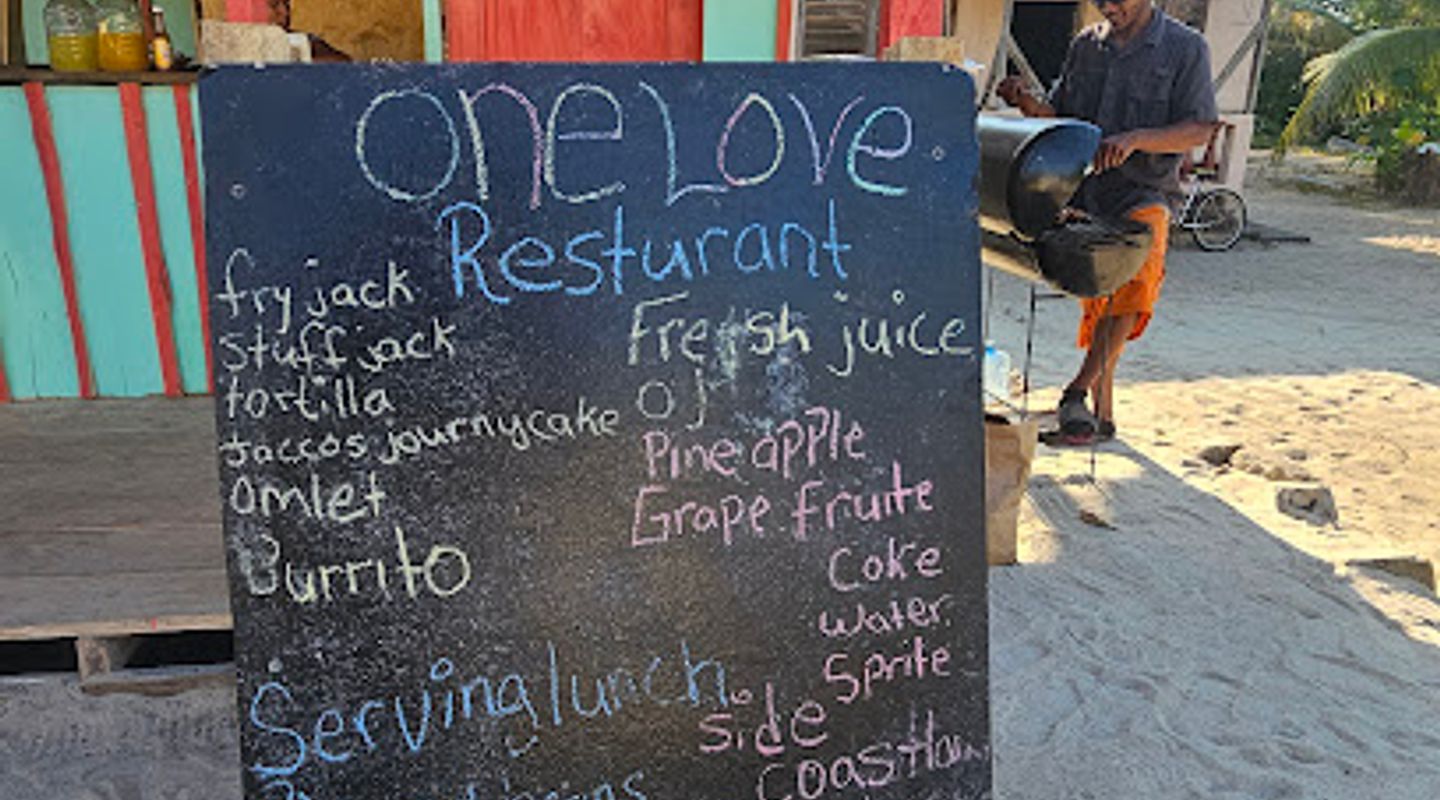 One Love
Resturant
fry jack
stuff jack
tortilla
taccos journycake
omlet
Burrito
Fresh juice
oj
Pineapple
Grape fruite
Coke
water
Sprite
Serving lunch
side